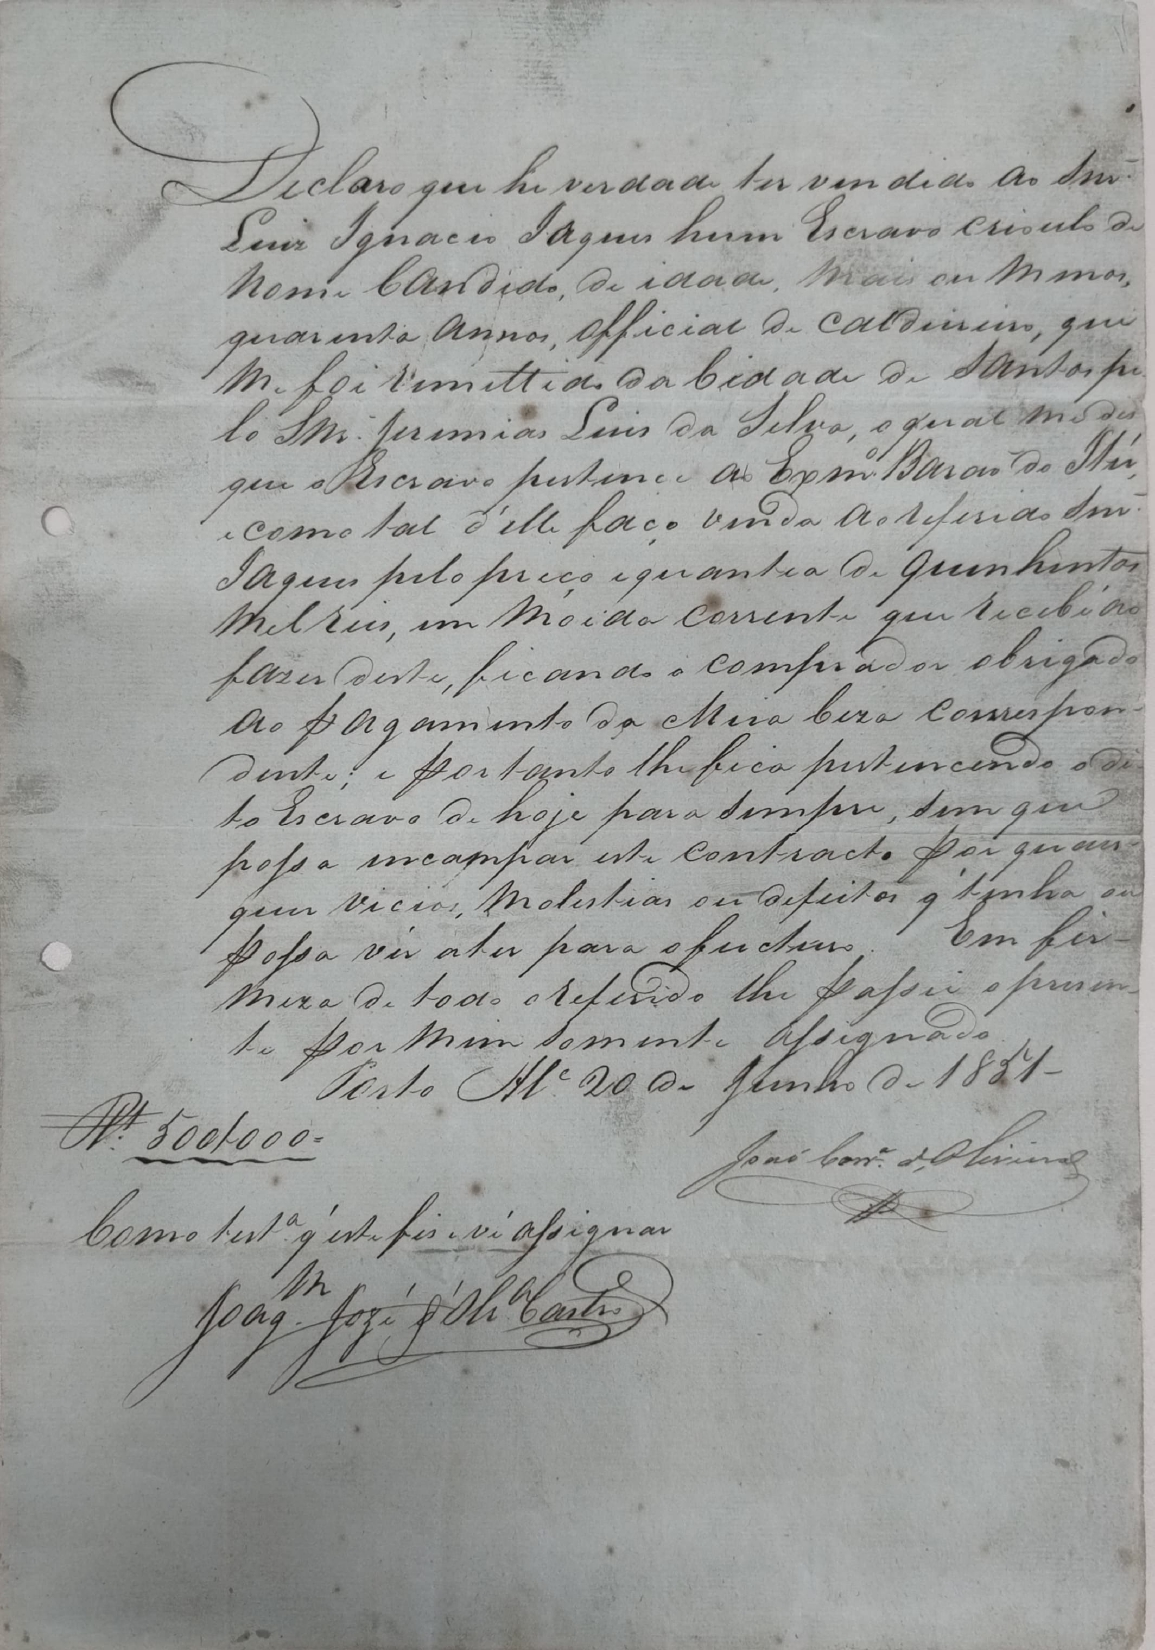 Declaro que he verdade ter vendido ao Snr.
Luiz Ignacio Jaques hum Escravo crioulo de
nome Candido, de idade, mais ou menos,
quarenta annos, official de caldeireiro, que
me foi remettido da Cidade de Santos pe
lo Snr. Jeremias Luis da Silva, o qual me diz
que o Escravo pertence ao Exmo. Barao do Itú,
e como tal d'elle faço venda ao referido Snr.
Jaques pelo preço e quantia de quinhentos
mil reis, em moéda corrente que recebi ao
fazer deste, ficando o comprador obrigado
ao pagamento da Meia Ciza correspon-
dente; e portanto lhe fica pertencendo o di
to Escravo de hoje para sempre, sem que
possa incampar este contracto por quaes-
quer vicios, molestias ou defeitos q' tenha ou
possa vir a ter para o fucturo. Em fir-
meza de todo o referido lhe passei o presen-
te por mim somente assignado
Porto Ale. 20 de Junho de 1851-
Rs. 500$000=
João Corra. d'Oliveira
Como testa. q' este fis e vi assignar
Joaqm. Jozé d'Olra. Castro